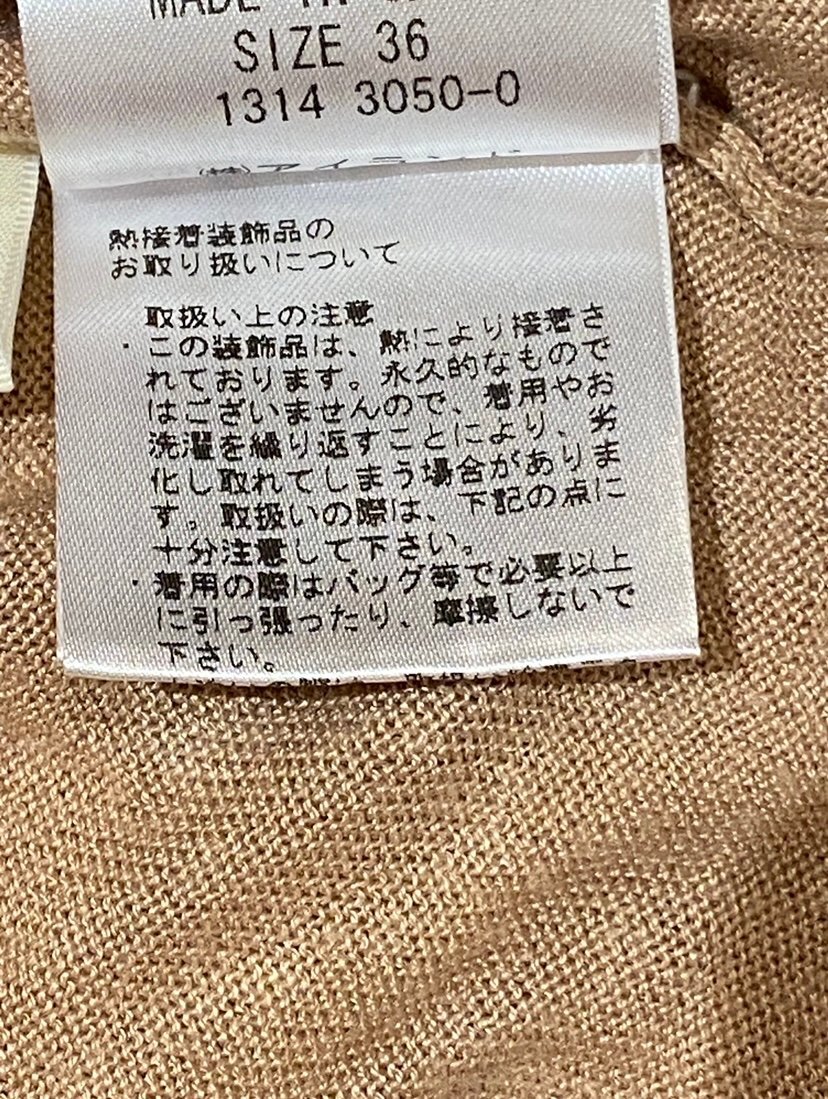 MADE IN
SIZE 36
1314 3050-0
(株)アイランド
熱接着装飾品の
お取り扱いについて
取扱い上の注意
・この装飾品は、熱により接着さ
れております。永久的なもので
はございませんので、着用やお
洗濯を繰り返すことにより、劣
化し取れてしまう場合がありま
す。取扱いの際は、下記の点に
十分注意して下さい。
・着用の際はバッグ等で必要以上
に引っ張ったり、摩擦しないで
下さい。